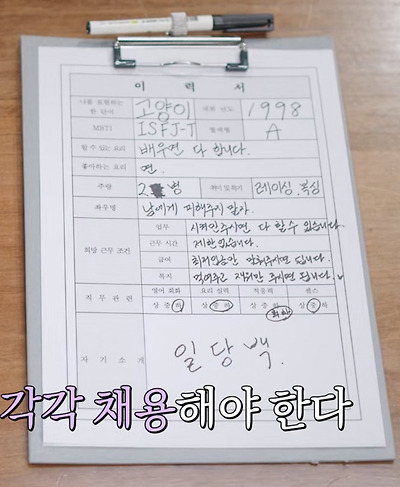 이 력 서
나를 표현하는 한 단어 고양이 데뷔 년도 1998
MBTI ISFJ-T 혈액형 A
할 수 있는 요리 배우면 다 합니다.
좋아하는 요리 면.
주량 2병 취미 및 특기 레이싱, 복싱
좌우명 남에게 피해주지 말자.
희망 근무 조건
업무 시켜만주시면 다 할 수 있습니다.
근무 시간 제한없습니다.
급여 최저임금만 맞춰주시면 됩니다.
복지 먹여주고 재워만 주시면 됩니다.
직 무 관 련
영어 회화 요리 실력 적응력 센스
상 중 하 상 중 하 상 중 하 상 중 하
자 기 소 개 일당백.
각각 채용해야 한다